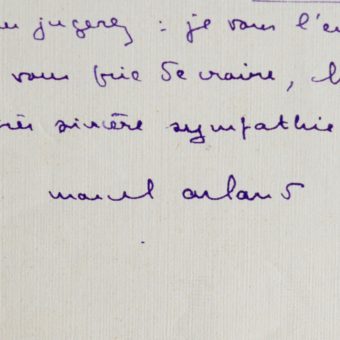 jugerez : je vous l'en
vous prie de croire,
sincère sympathie
marcel arland